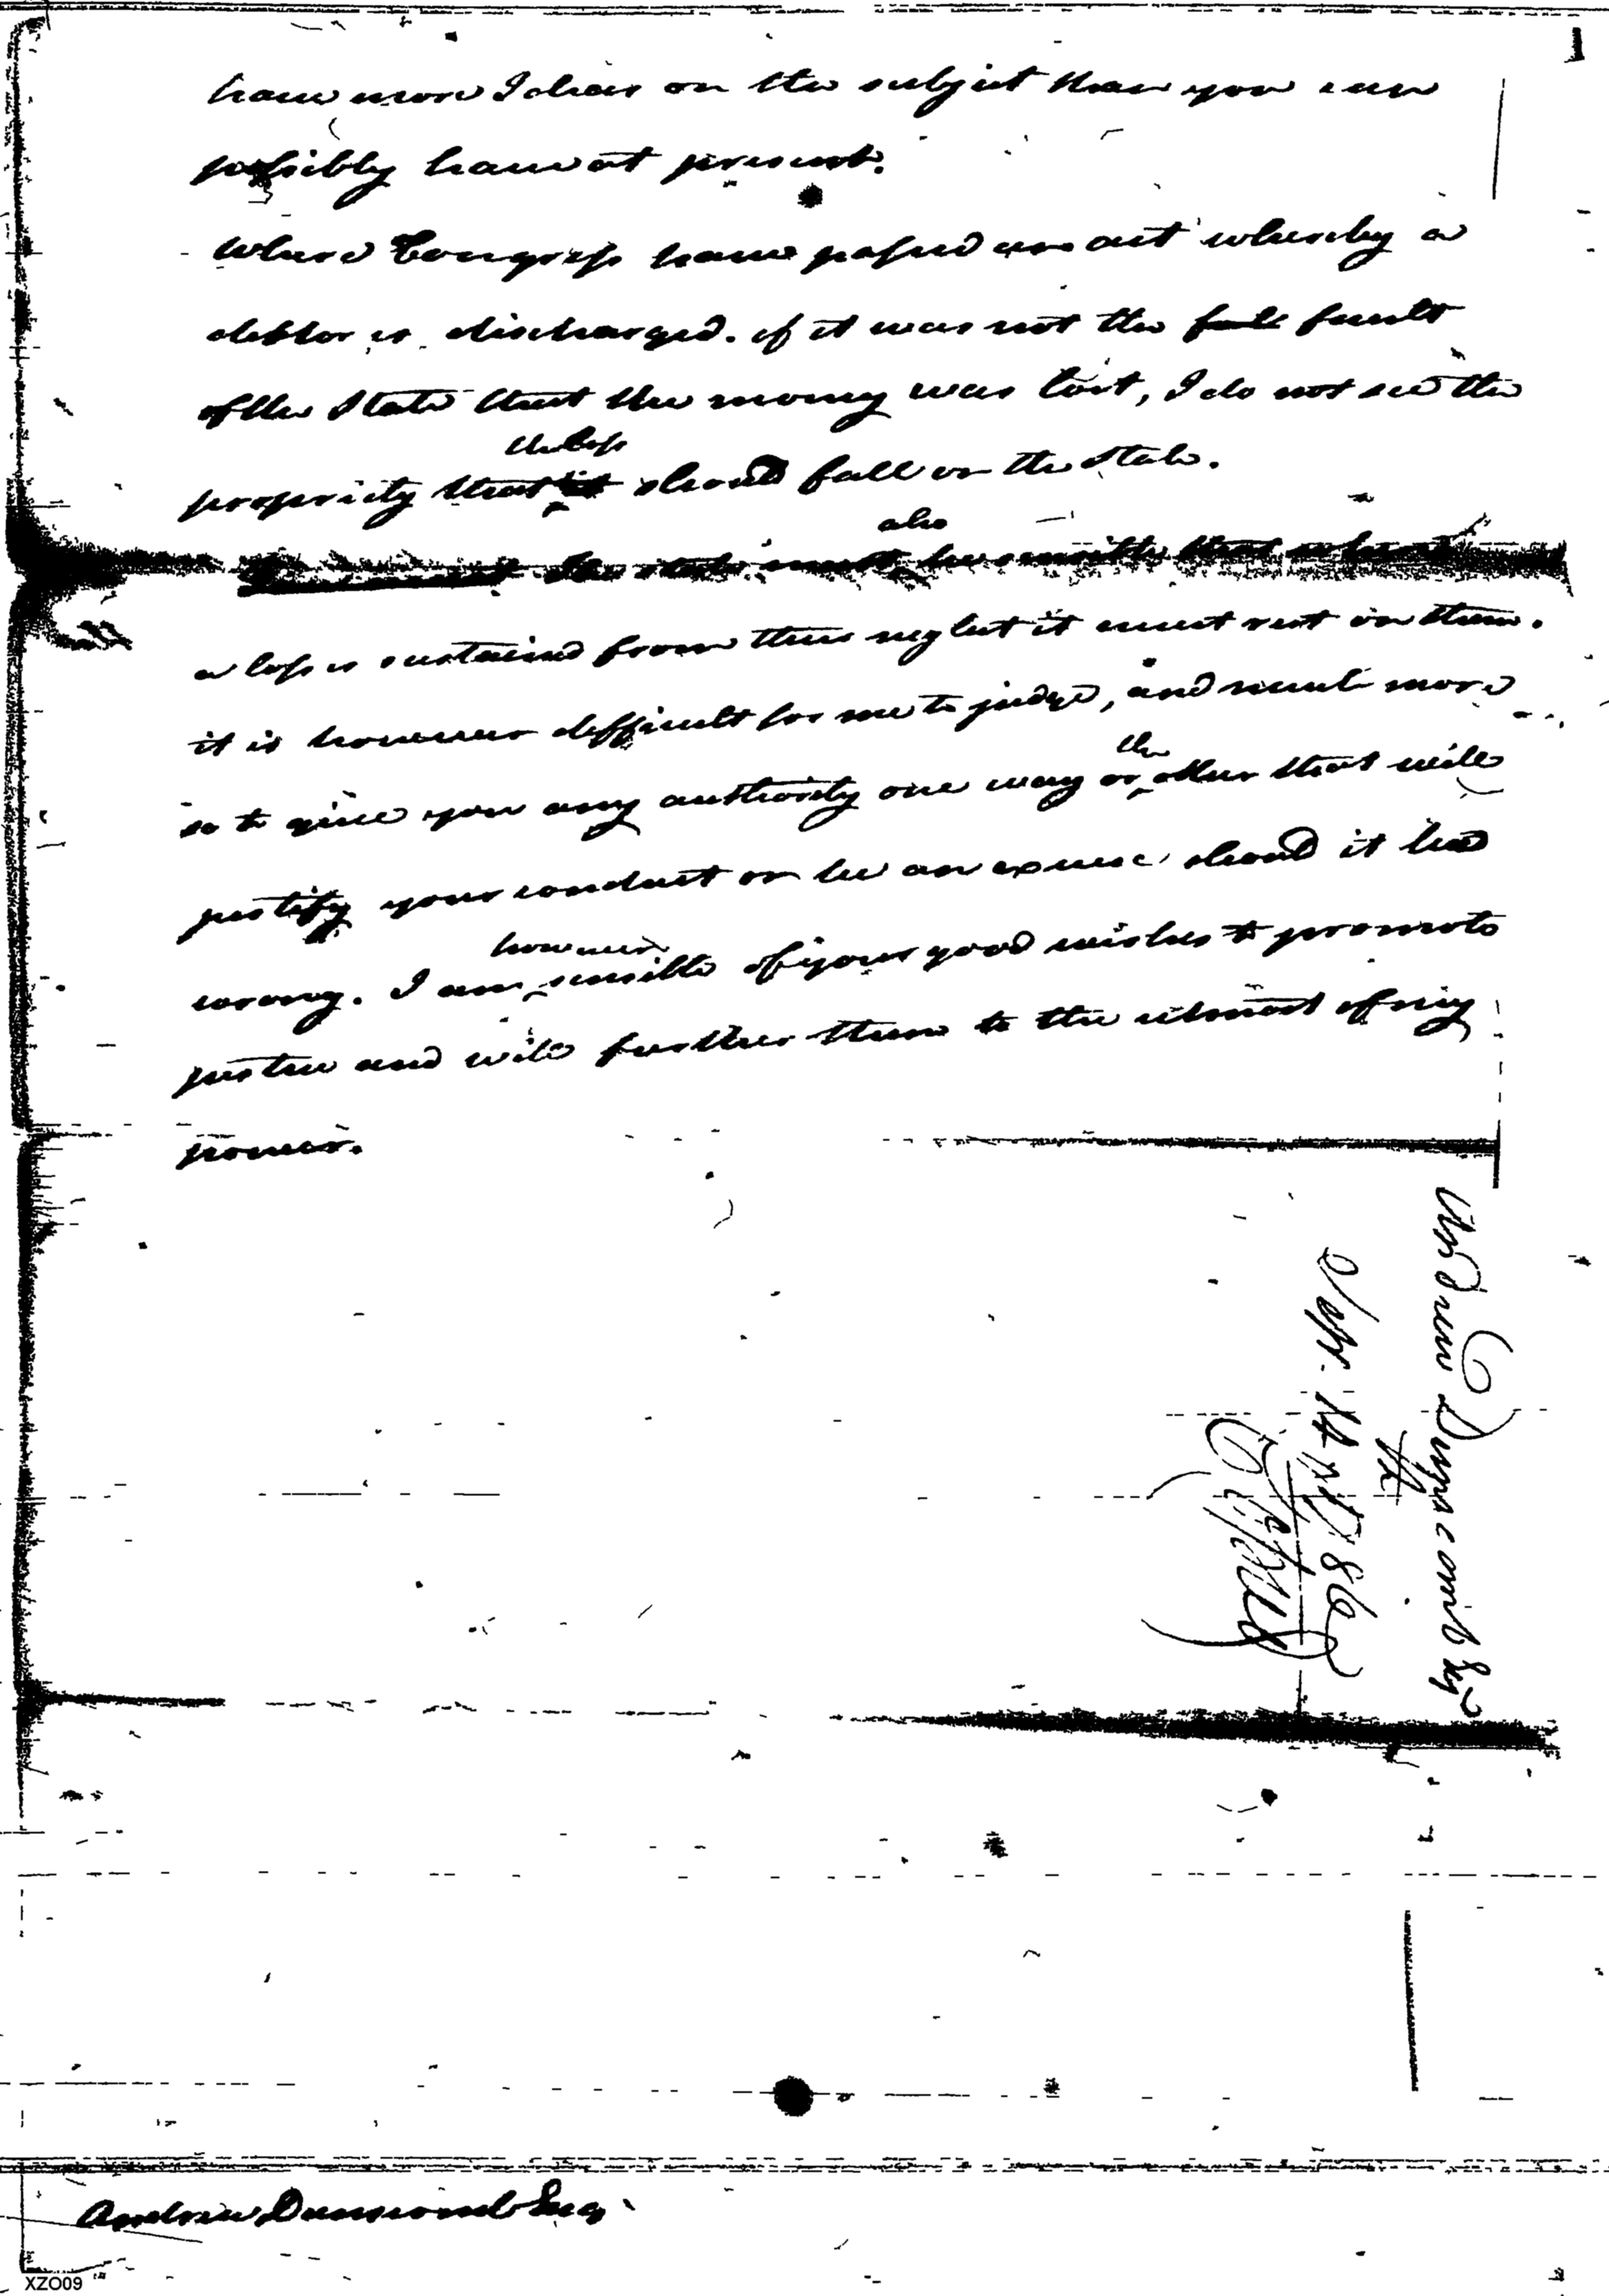 have more Ideas on the subject than you can
possibly have at present.
Where Congress have passed an act whereby a
debtor is discharged. if it was not the fault
of the State that the money was lost, I do not see the
the loss
propriety that it should fall on the State.
also
the state must be sensible that where
a loss is sustained from their neglect it must rest on them.
it is however difficult for me to judge, and much more
the
so to give you any authority one way or other that will
justify your conduct or be an excuse should it be
however
wrong. I am sensible of your good wishes to promote
justice and will further them to the utmost of my
power.
Andrew Dunscomb Esq
Sept. 14th 1786
Copied
Andrew Dunscomb Esq
XZO09